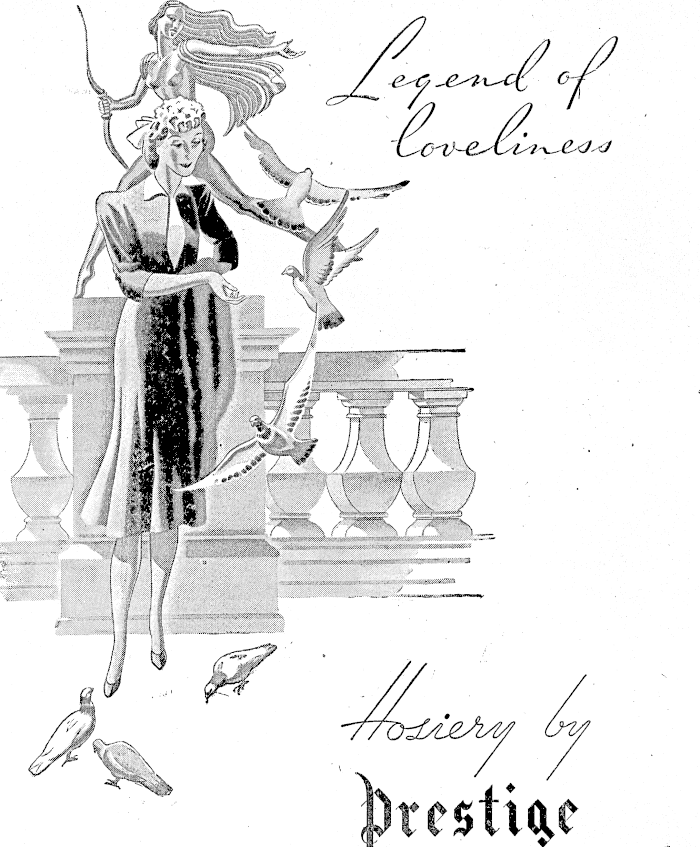 Legend of
loveliness
Hosiery by
Prestige